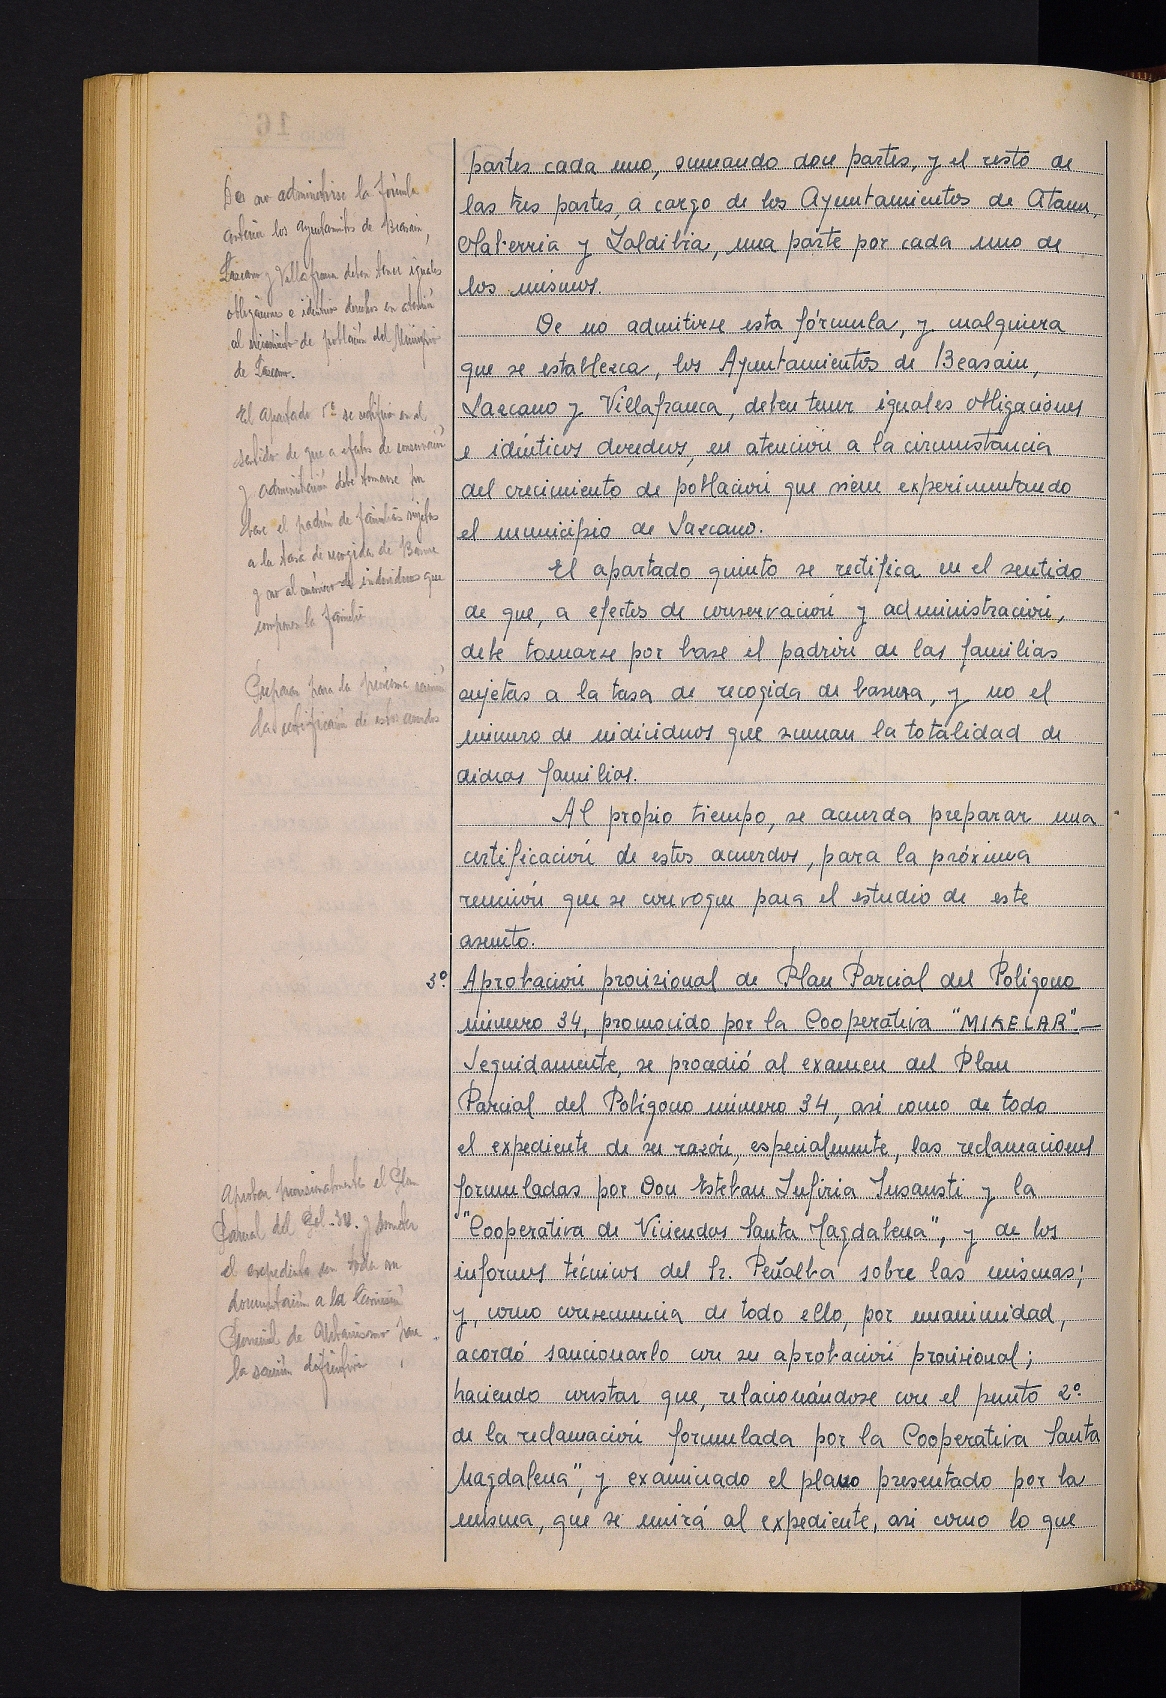 partes cada uno, sumando doce partes, y el resto de
las tres partes, a cargo de los Ayuntamientos de Ataun,
Olaberria y Zaldibia, una parte por cada uno de
los mismos.
De no admitirse esta fórmula, y cualquiera
que se establezca, los Ayuntamientos de Beasain,
Lazcano y Villafranca, deben tener iguales obligaciones
e idénticos derechos, en atención a la circunstancia
del crecimiento de población que viene experimentando
el municipio de Lazcano.
El apartado quinto se rectifica en el sentido
de que, a efectos de conservación y administración,
debe tomarse por base el padrón de las familias
sujetas a la tasa de recogida de basura, y no el
número de individuos que suman la totalidad de
dichas familias.
Al propio tiempo, se acuerda preparar una
certificación de estos acuerdos, para la próxima
reunión que se convoque para el estudio de este
asunto.
3º. Aprobación provisional de Plan Parcial del Polígono
número 34, promovido por la Cooperativa "MIKELAR".—
Seguidamente, se procedió al examen del Plan
Parcial del Polígono número 34, así como de todo
el expediente de su razón, especialmente, las reclamaciones
formuladas por Don Esteban Insausti y la
"Cooperativa de Viviendas Santa Magdalena", y de los
informes técnicos del Sr. Peñalba sobre las mismas;
y, como consecuencia de todo ello, por unanimidad,
acordó sancionarlo con su aprobación provisional;
haciendo constar que, relacionándose con el punto 2º
de la reclamación formulada por la Cooperativa Santa
Magdalena", y examinado el plano presentado por la
misma, que se unirá al expediente, asi como lo que
De no administrarse la fórmula
anterior los ayuntamientos de Beasain,
Lazcano y Villafranca deben tener iguales
obligaciones e idénticos derechos en atención
al crecimiento de población del Municipio
de Lazcano.
El apartado 5º se rectifica en el
sentido de que a efectos de conservación
y administración debe tomarse por
base el padrón de familias sujetas
a la tasa de recogida de Basura
y no al número de individuos que
componen la familia
Preparar para la próxima reunión
la certificación de estos acuerdos
Aprobar provisionalmente el Plan
Parcial del Pol. 34. y someter
el expediente con toda su
documentación a la Comisión
Provincial de Urbanismo para
la sanción definitiva
16